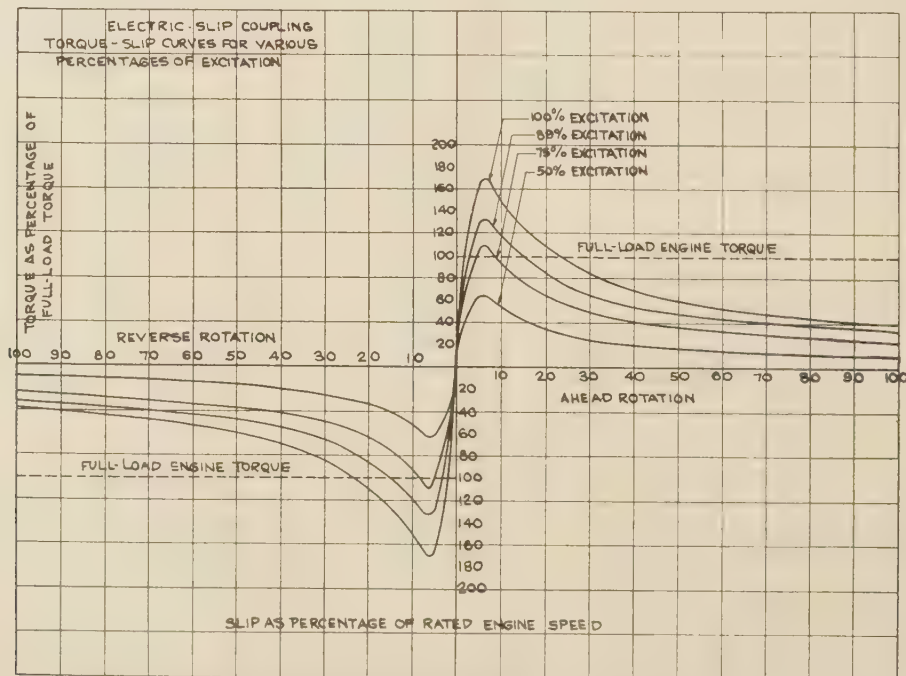 ELECTRIC-SLIP COUPLING
TORQUE-SLIP CURVES FOR VARIOUS
PERCENTAGES OF EXCITATION
100% EXCITATION
88% EXCITATION
75% EXCITATION
50% EXCITATION
TORQUE AS PERCENTAGE OF
FULL-LOAD TORQUE
200
180
160
140
120
100
80
60
40
20
FULL-LOAD ENGINE TORQUE
REVERSE ROTATION
100 90 80 70 60 50 40 30 20 10 0 10 20 30 40 50 60 70 80 90 100
AHEAD ROTATION
20
40
60
80
100
120
140
160
180
200
FULL-LOAD ENGINE TORQUE
SLIP AS PERCENTAGE OF RATED ENGINE SPEED